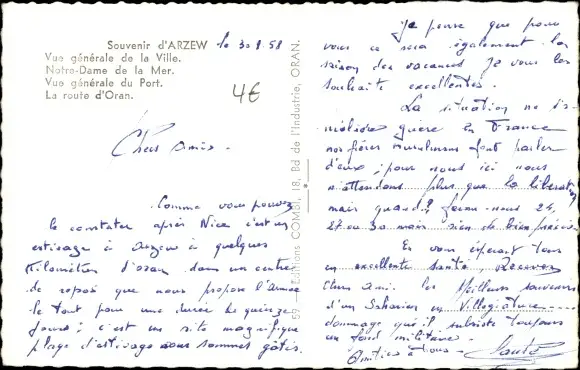 Souvenir d'ARZEW le 30.8.58
Vue générale de la Ville.
Notre-Dame de la Mer.
Vue générale du Port.
La route d'Oran.
4€
Chers amis.
Comme vous pouvez
le constater après Nice c'est un
estivage à Arzew à quelques
Kilomètres d'oran dans un centre
de repos que nous propose l'Armée
le tout pour une durée de quinze
jours; c'est un site magnifique
plage d'estivage nous sommes gâtés.
59 Editions COMBI, 18, Bd de l'Industrie, ORAN.
Je pense que pour
vous ce sera également la
saison des vacances je vous les
souhaite excellentes.
La situation ne s'a-
méliore guère en France
nos frères musulmans font parler
d'eux; pour nous ici nous
n'attendons plus que la libération
mais quand? ferons-nous 24,
27 ou 30 mois rien de bien précis
En vous espérant tous
en excellente santé, Recevez
Chers ami. les Meilleurs souvenirs
d'un Saharien en Villégiature
dommage qu'il subsiste toujours
un fond militaire.
Amitiés à tous -